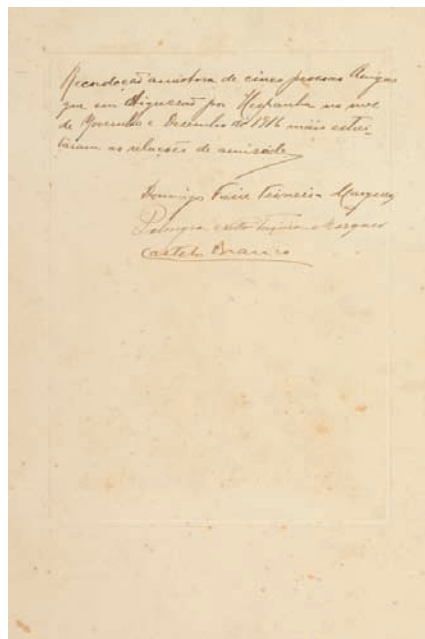 Recordação amistosa de cinco pessoas Amigas
que em digressão por Hespanha no mez
de Novembro e Dezembro de 1916 mais estrei-
taram as relações de amizade
Domingos Teixeira Marques
Palmyra Teixeira Marques
Castelo Branco